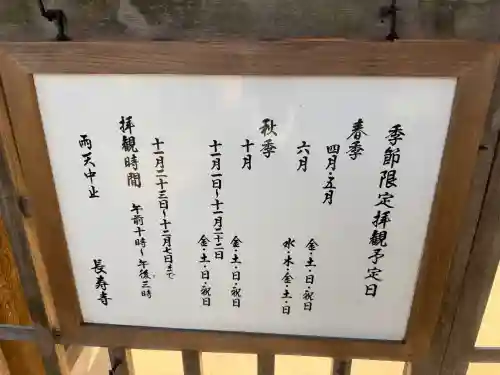 季節限定拝観予定日
春季
四月・五月 金・土・日・祝日
六月 水・木・金・土・日
秋季
十月 金・土・日・祝日
十一月一日〜十一月二十二日 金・土・日・祝日
十一月二十三日〜十二月七日まで
拝観時間 午前十時〜午後三時
雨天中止
長寿寺